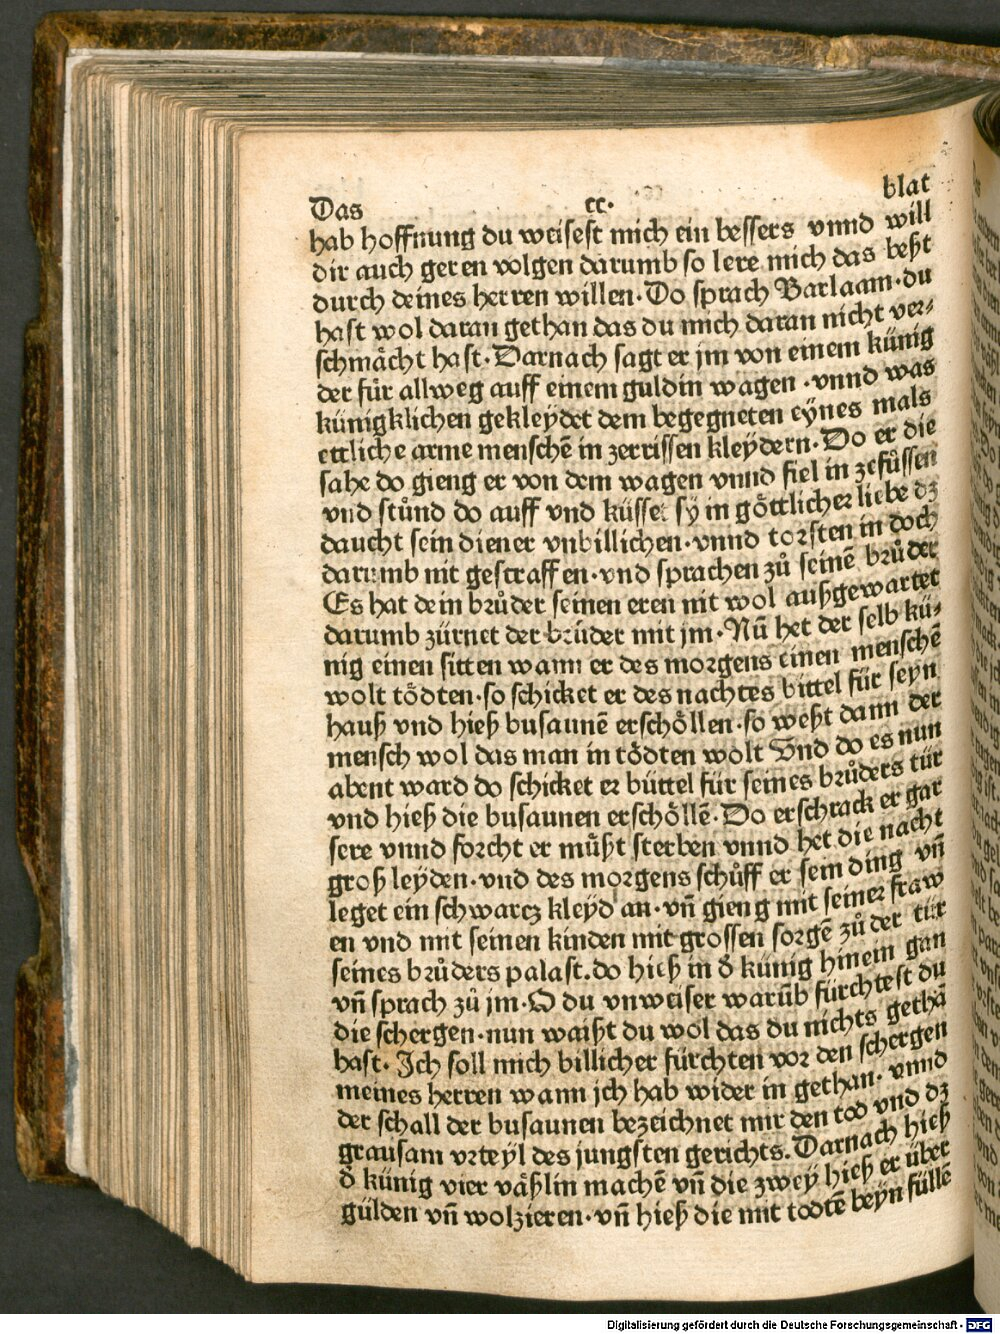 Das cc. blat
hab hoffnung du weisest mich ein bessers vnnd will
dir auch geren volgen darumb so lere mich das beßt
durch deines herren willen. Do sprach Barlaam. du
hast wol daran gethan das du mich daran nicht ver⸗
schmächt hast. Darnach sagt er jm von einem künig
der für allweg auff einem guldin wagen . vnnd was
künigklichen gekleydet dem begegneten eynes mals
ettliche arme menschē in zerrissen kleydern. Do er die
sahe do gieng er von dem wagen vnnd fiel in zefůssen
vnd stůnd do auff vnd küsset sy in göttlicher liebe dz
daucht sein diener vnbillichen. vnnd torsten in doch
darumb nit gestraffen. vnd sprachen zů seinē brůder
Es hat dein brůder seinen eren nit wol außgewartet
darumb zürnet der brůder mit jm. Nū het der selb kü⸗
nig einen sitten wann er des morgens einen menschē
wolt tödten. so schicket er des nachtes bittel für seyn
hauß vnd hieß busaunē erschöllen. so weßt dann der
mensch wol das man in tödten wolt Vnd do es nun
abent ward do schicket er büttel für seines brůders tür
vnd hieß die busaunen erschöllē. Do erschrack er gar
sere vnnd forcht er můßt sterben vnnd het die nacht
groß leyden. vnd des morgens schůff er sein ding vñ
leget ein schwarcz kleyd an. vñ gieng mit seiner fraw
en vnd mit seinen kinden mit grossen sorgē zů der tür
seines brůders palast. do hieß in d̄ künig hinein gan
vñ sprach zů jm. O du vnweiser warūb fürchtest du
die schergen. nun waißt du wol das du nichts gethā
hast. Ich soll mich billicher fürchten vor den schergen
meines herren wann jch hab wider in gethan. vnnd
der schall der busaunen bezeichnet mir den tod vnd dz
grausam vrteyl des jungsten gerichts. Darnach hieß
d̄ künig vier väßlin machē vñ die zwey hieß er über
gülden vñ wolzieren. vñ hieß die mit todtē beyn füllē
Digitalisierung gefördert durch die Deutsche Forschungsgemeinschaft - DFG